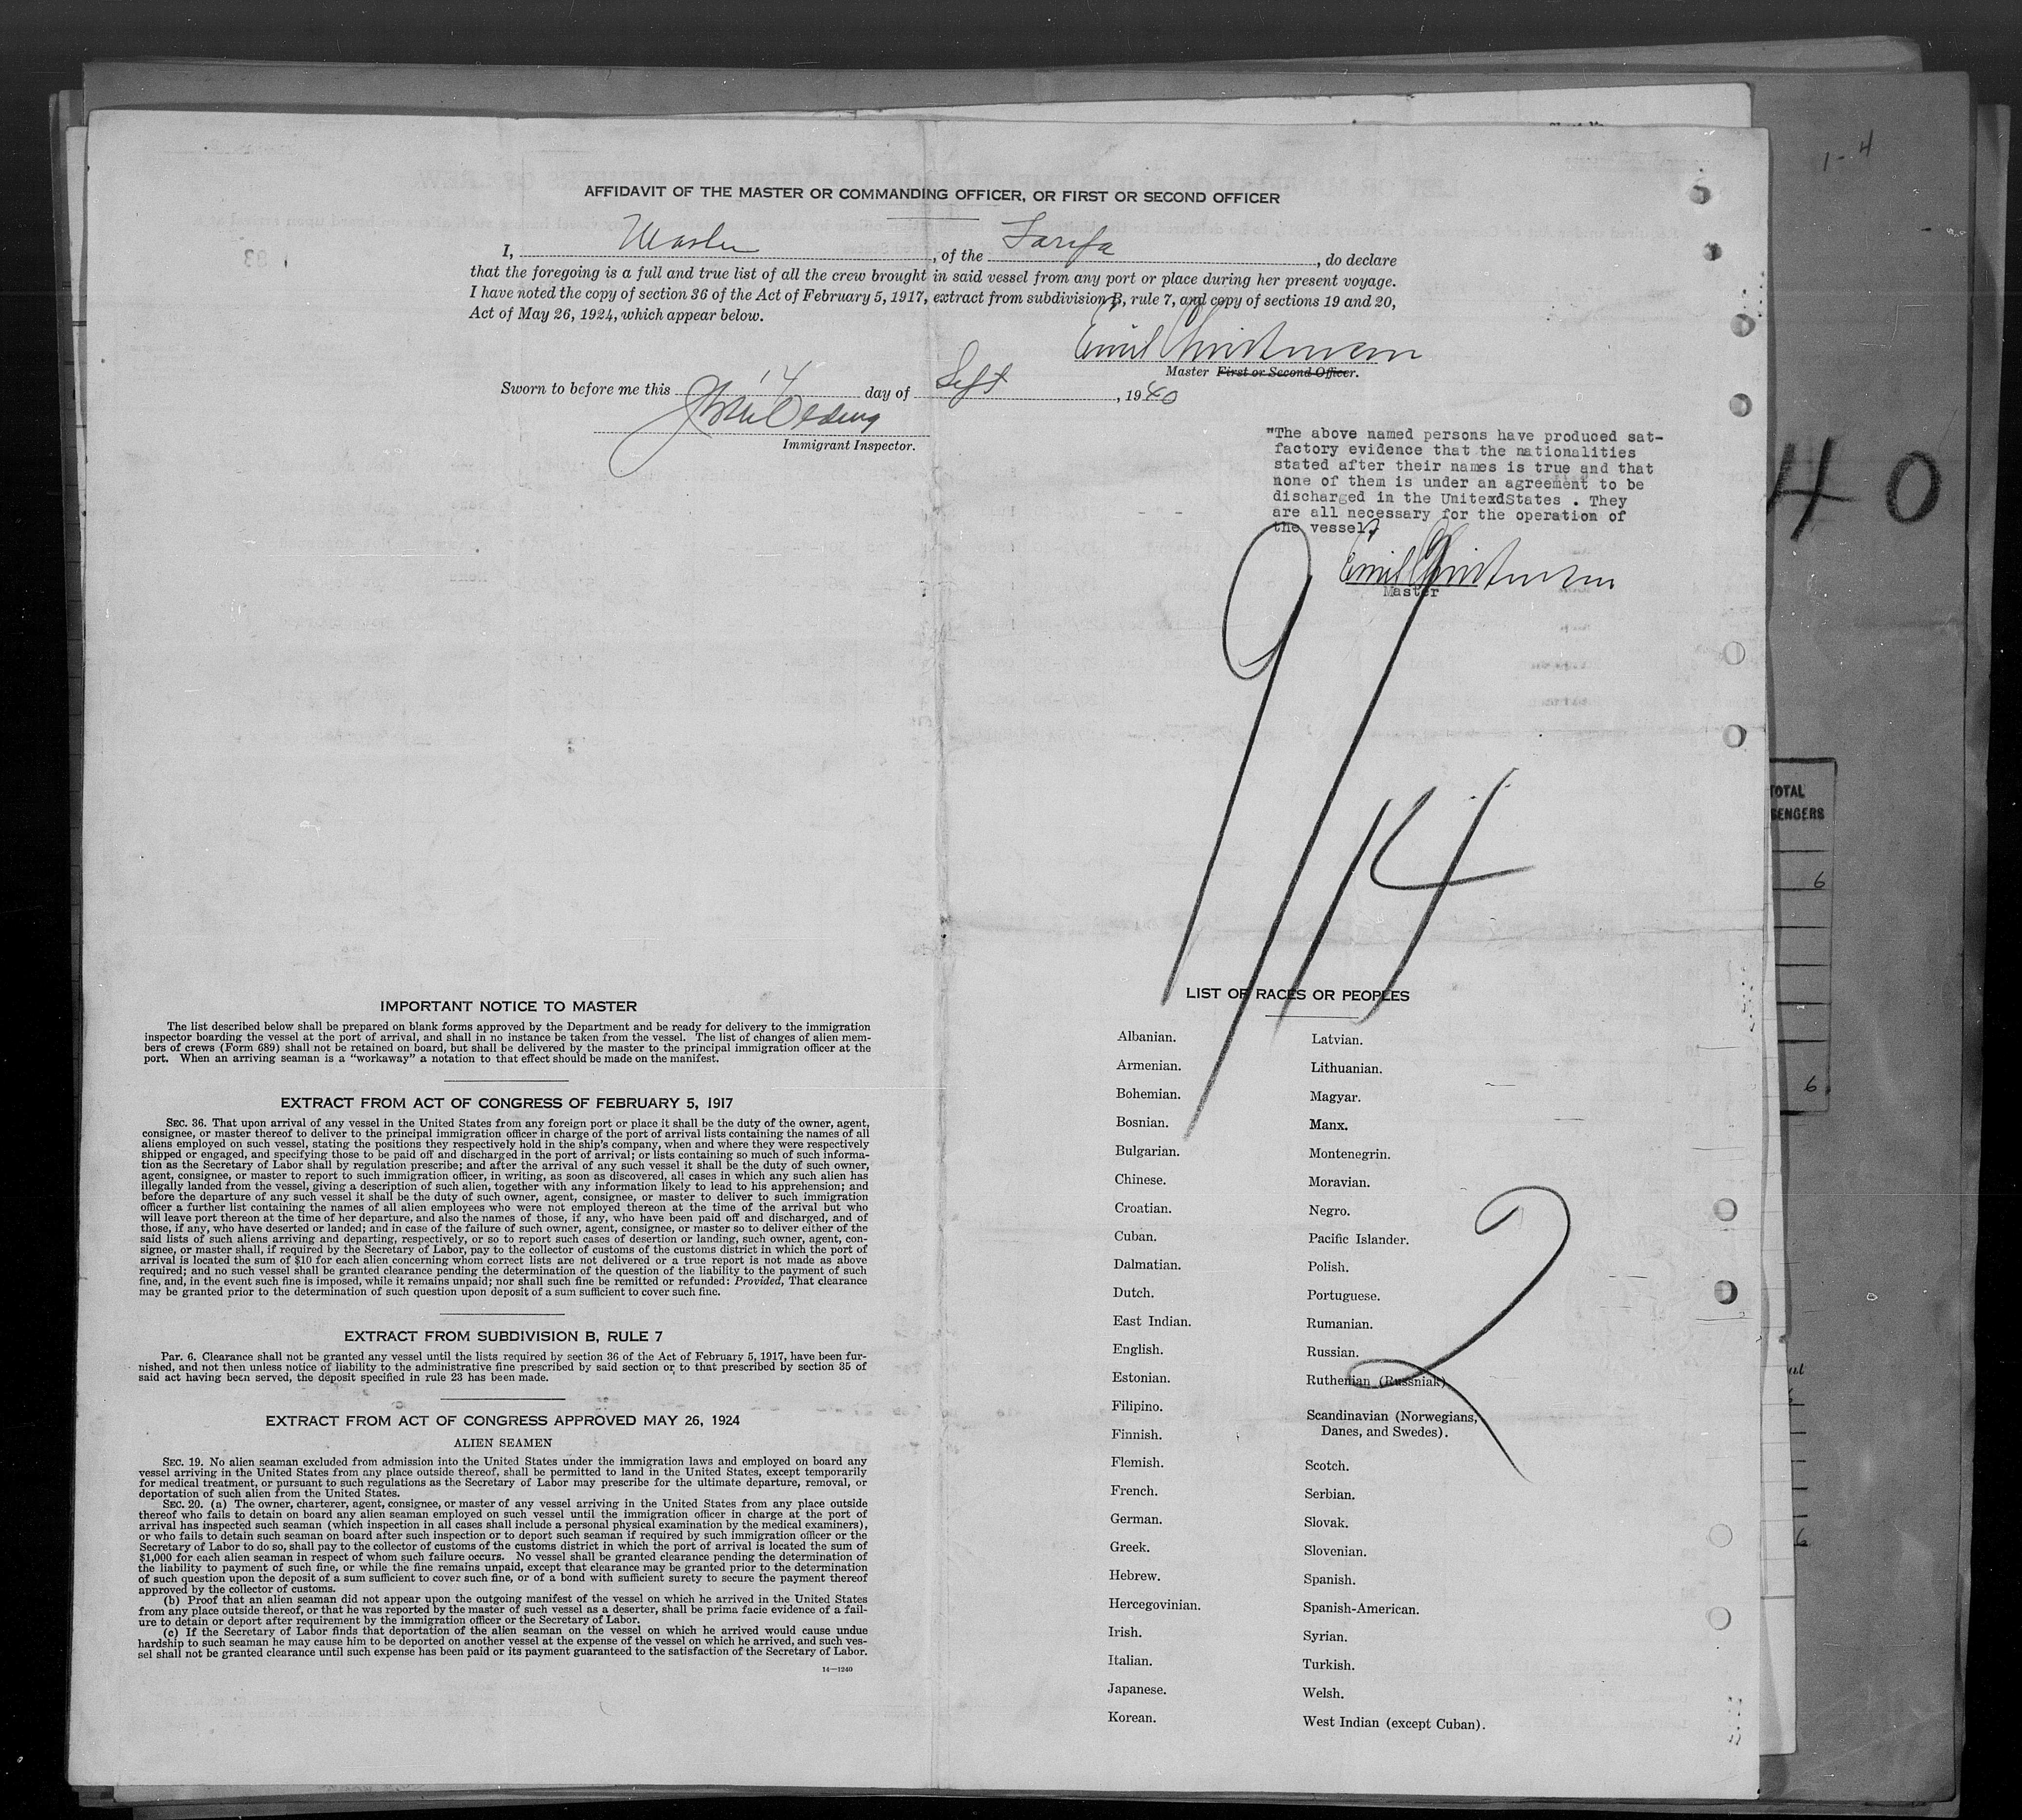 1-4
AFFIDAVIT OF THE MASTER OR COMMANDING OFFICER, OR FIRST OR SECOND OFFICER
I, Master, of the Tarifa, do declare
that the foregoing is a full and true list of all the crew brought in said vessel from any port or place during her present voyage.
I have noted the copy of section 36 of the Act of February 5, 1917, extract from subdivision B, rule 7, and copy of sections 19 and 20,
Act of May 26, 1924, which appear below.
Emil
Master First or Second Officer.
Sworn to before me this 14 day of Sept, 1940
Immigrant Inspector.
"The above named persons have produced sat-
factory evidence that the nationalities
stated after their names is true and that
none of them is under an agreement to be
discharged in the UnitexdStates . They
are all necessary for the operation of
the vessel.
Emil
Master
40
9/14
TOTAL
SENGERS
6
6
2
6
IMPORTANT NOTICE TO MASTER
The list described below shall be prepared on blank forms approved by the Department and be ready for delivery to the immigration
inspector boarding the vessel at the port of arrival, and shall in no instance be taken from the vessel. The list of changes of alien mem-
bers of crews (Form 689) shall not be retained on board, but shall be delivered by the master to the principal immigration officer at the
port. When an arriving seaman is a "workaway" a notation to that effect should be made on the manifest.
EXTRACT FROM ACT OF CONGRESS OF FEBRUARY 5, 1917
SEC. 36. That upon arrival of any vessel in the United States from any foreign port or place it shall be the duty of the owner, agent,
consignee, or master thereof to deliver to the principal immigration officer in charge of the port of arrival lists containing the names of all
aliens employed on such vessel, stating the positions they respectively hold in the ship's company, when and where they were respectively
shipped or engaged, and specifying those to be paid off and discharged in the port of arrival; or lists containing so much of such informa-
tion as the Secretary of Labor shall by regulation prescribe; and after the arrival of any such vessel it shall be the duty of such owner,
agent, consignee, or master to report to such immigration officer, in writing, as soon as discovered, all cases in which any such alien has
illegally landed from the vessel, giving a description of such alien, together with any information likely to lead to his apprehension; and
before the departure of any such vessel it shall be the duty of such owner, agent, consignee, or master to deliver to such immigration
officer a further list containing the names of all alien employees who were not employed thereon at the time of the arrival but who
will leave port thereon at the time of her departure, and also the names of those, if any, who have been paid off and discharged, and of
those, if any, who have deserted or landed; and in case of the failure of such owner, agent, consignee, or master so to deliver either of the
said lists of such aliens arriving and departing, respectively, or so to report such cases of desertion or landing, such owner, agent, con-
signee, or master shall, if required by the Secretary of Labor, pay to the collector of customs of the customs district in which the port of
arrival is located the sum of $10 for each alien concerning whom correct lists are not delivered or a true report is not made as above
required; and no such vessel shall be granted clearance pending the determination of the question of the liability to the payment of such
fine, and, in the event such fine is imposed, while it remains unpaid; nor shall such fine be remitted or refunded: Provided, That clearance
may be granted prior to the determination of such question upon deposit of a sum sufficient to cover such fine.
EXTRACT FROM SUBDIVISION B, RULE 7
PAR. 6. Clearance shall not be granted any vessel until the lists required by section 36 of the Act of February 5, 1917, have been fur-
nished, and not then unless notice of liability to the administrative fine prescribed by said section or to that prescribed by section 35 of
said act having been served, the deposit specified in rule 23 has been made.
EXTRACT FROM ACT OF CONGRESS APPROVED MAY 26, 1924
ALIEN SEAMEN
SEC. 19. No alien seaman excluded from admission into the United States under the immigration laws and employed on board any
vessel arriving in the United States from any place outside thereof, shall be permitted to land in the United States, except temporarily
for medical treatment, or pursuant to such regulations as the Secretary of Labor may prescribe for the ultimate departure, removal, or
deportation of such alien from the United States.
SEC. 20. (a) The owner, charterer, agent, consignee, or master of any vessel arriving in the United States from any place outside
thereof who fails to detain on board any alien seaman employed on such vessel until the immigration officer in charge at the port of
arrival has inspected such seaman (which inspection in all cases shall include a personal physical examination by the medical examiners),
or who fails to detain such seaman on board after such inspection or to deport such seaman if required by such immigration officer or the
Secretary of Labor to do so, shall pay to the collector of customs of the customs district in which the port of arrival is located the sum of
$1,000 for each alien seaman in respect of whom such failure occurs. No vessel shall be granted clearance pending the determination of
the liability to payment of such fine, or while the fine remains unpaid, except that clearance may be granted prior to the determination
of such question upon the deposit of a sum sufficient to cover such fine, or of a bond with sufficient surety to secure the payment thereof
approved by the collector of customs.
(b) Proof that an alien seaman did not appear upon the outgoing manifest of the vessel on which he arrived in the United States
from any place outside thereof, or that he was reported by the master of such vessel as a deserter, shall be prima facie evidence of a fail-
ure to detain or deport after requirement by the immigration officer or the Secretary of Labor.
(c) If the Secretary of Labor finds that deportation of the alien seaman on the vessel on which he arrived would cause undue
hardship to such seaman he may cause him to be deported on another vessel at the expense of the vessel on which he arrived, and such ves-
sel shall not be granted clearance until such expense has been paid or its payment guaranteed to the satisfaction of the Secretary of Labor.
14—1240
LIST OF RACES OR PEOPLES
Albanian.
Armenian.
Bohemian.
Bosnian.
Bulgarian.
Chinese.
Croatian.
Cuban.
Dalmatian.
Dutch.
East Indian.
English.
Estonian.
Filipino.
Finnish.
Flemish.
French.
German.
Greek.
Hebrew.
Hercegovinian.
Irish.
Italian.
Japanese.
Korean.
Latvian.
Lithuanian.
Magyar.
Manx.
Montenegrin.
Moravian.
Negro.
Pacific Islander.
Polish.
Portuguese.
Rumanian.
Russian.
Ruthenian (Russniak).
Scandinavian (Norwegians,
Danes, and Swedes).
Scotch.
Serbian.
Slovak.
Slovenian.
Spanish.
Spanish-American.
Syrian.
Turkish.
Welsh.
West Indian (except Cuban).